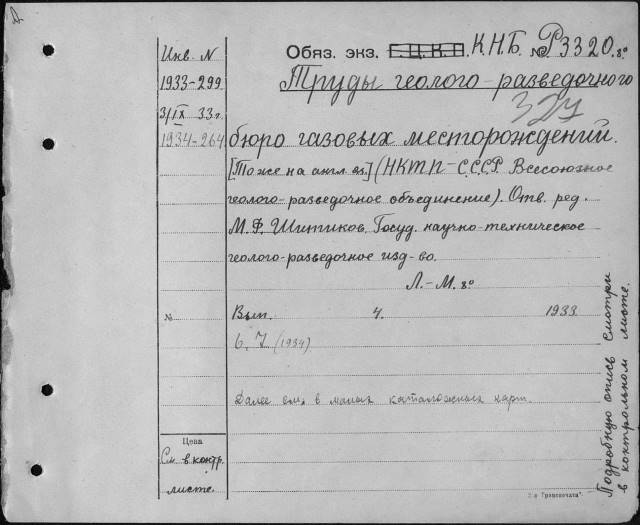 Инв. N
1933-299
3/IX 33 г.
1934-264
Обяз. экз. Г.Ц.К.П. К.Н.Б. № Р3320. 8°
Труды геолого-разведочного
327
бюро газовых месторождений.
[То же на англ. яз.] (НКТП-СССР. Всесоюзное
геолого-разведочное объединение). Отв. ред.
М.Ф. Шитиков. Госуд. научно-техническое
геолого-разведочное изд-во.
Л.-М. 8°
№ Вып. 4. 1933
6. 7 (1934)
Далее см. в каталожных карт.
Цена
См. в контр.
листе.
Подробную опись смотри
в контрольном листе.